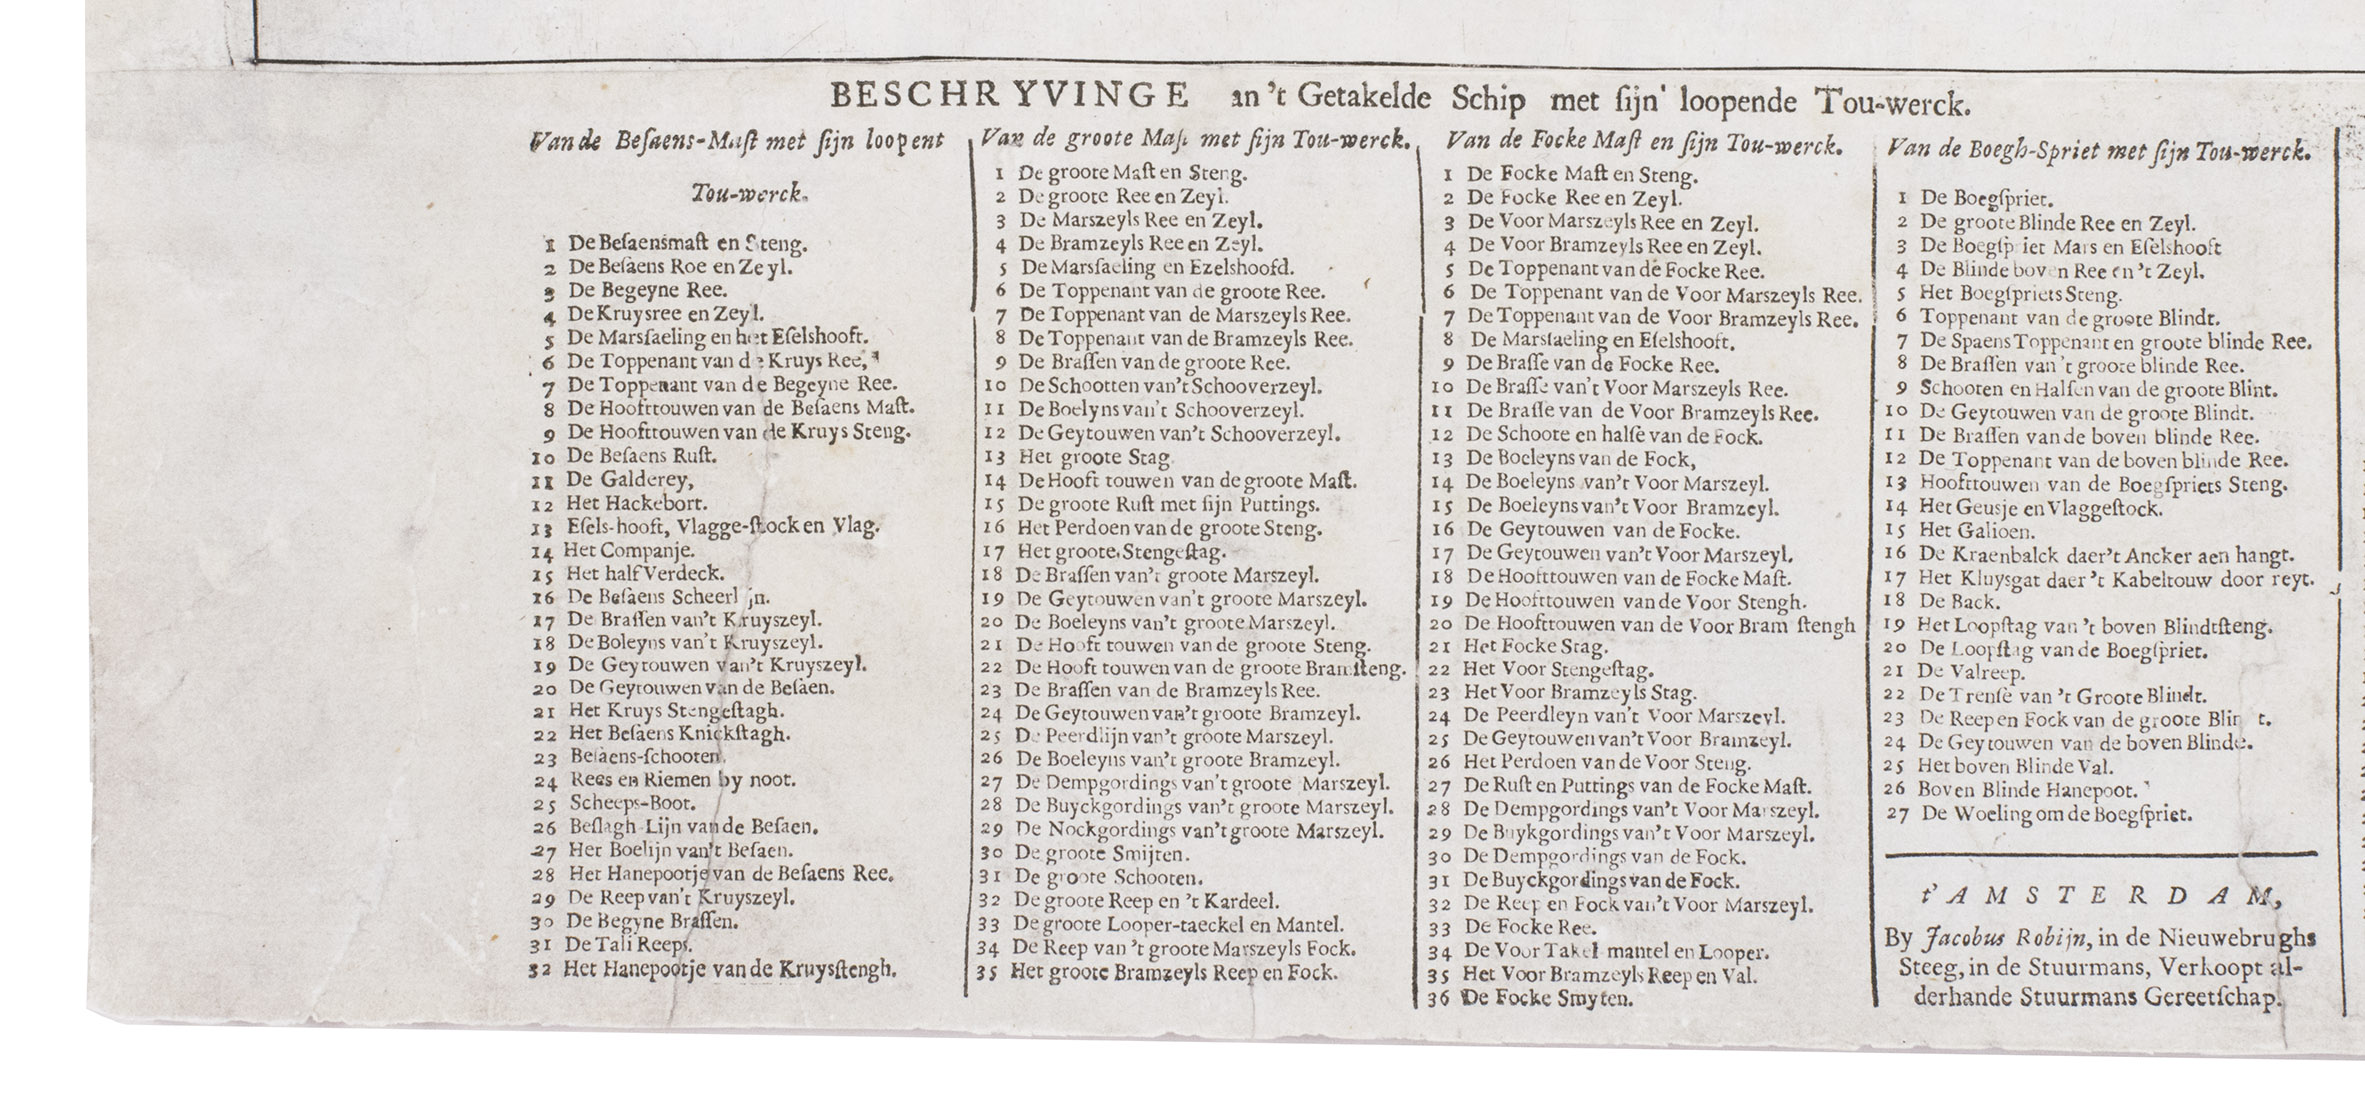 BESCHRYVINGE an 't Getakelde Schip met ſijn' loopende Tou-werck.
Van de Beſaens-Maſt met ſijn loopent
Tou-werck.
1 De Beſaensmaſt en Steng.
2 De Beſaens Roe en Zeyl.
3 De Begeyne Ree.
4 De Kruysree en Zeyl.
5 De Marsſaeling en het Eſelshooft.
6 De Toppenant van de Kruys Ree,
7 De Toppenant van de Begeyne Ree.
8 De Hoofttouwen van de Beſaens Maſt.
9 De Hoofttouwen van de Kruys Steng.
10 De Beſaens Ruſt.
11 De Galderey,
12 Het Hackebort.
13 Eſels-hooft, Vlagge-ſtock en Vlag.
14 Het Companje.
15 Het half Verdeck.
16 De Beſaens Scheerl jn.
17 De Braſſen van't Kruyszeyl.
18 De Boleyns van't Kruyszeyl.
19 De Geytouwen van't Kruyszeyl.
20 De Geytouwen van de Beſaen.
21 Het Kruys Stengeſtagh.
22 Het Beſaens Knickſtagh.
23 Beſaens-ſchooten.
24 Rees en Riemen by noot.
25 Scheeps-Boot.
26 Beſlagh-Lijn van de Beſaen.
27 Het Boelijn van't Beſaen.
28 Het Hanepootje van de Beſaens Ree.
29 De Reep van't Kruyszeyl.
30 De Begyne Braſſen.
31 De Tali Reeps.
32 Het Hanepootje van de Kruysſtengh.
Van de groote Maſt met ſijn Tou-werck.
1 De groote Maſt en Steng.
2 De groote Ree en Zeyl.
3 De Marszeyls Ree en Zeyl.
4 De Bramzeyls Ree en Zeyl.
5 De Marsſaeling en Ezelshoofd.
6 De Toppenant van de groote Ree.
7 De Toppenant van de Marszeyls Ree.
8 De Toppenant van de Bramzeyls Ree.
9 De Braſſen van de groote Ree.
10 De Schootten van't Schooverzeyl.
11 De Boelyns van't Schooverzeyl.
12 De Geytouwen van't Schooverzeyl.
13 Het groote Stag
14 De Hooft touwen van de groote Maſt.
15 De groote Ruſt met ſijn Puttings.
16 Het Perdoen van de groote Steng.
17 Het groote Stengeſtag.
18 De Braſſen van't groote Marszeyl.
19 De Geytouwen van't groote Marszeyl.
20 De Boeleyns van't groote Marszeyl.
21 De Hooft touwen van de groote Steng.
22 De Hooft touwen van de groote Bramſteng.
23 De Braſſen van de Bramzeyls Ree.
24 De Geytouwen van't groote Bramzeyl.
25 De Peerdlijn van't groote Marszeyl.
26 De Boeleyns van't groote Bramzeyl.
27 De Dempgordings van't groote Marszeyl.
28 De Buyckgordings van't groote Marszeyl.
29 De Nockgordings van't groote Marszeyl.
30 De groote Smijten.
31 De groote Schooten.
32 De groote Reep en 't Kardeel.
33 De groote Looper-taeckel en Mantel.
34 De Reep van 't groote Marszeyls Fock.
35 Het groote Bramzeyls Reep en Fock.
Van de Focke Maſt en ſijn Tou-werck.
1 De Focke Maſt en Steng.
2 De Focke Ree en Zeyl.
3 De Voor Marszeyls Ree en Zeyl.
4 De Voor Bramzeyls Ree en Zeyl.
5 De Toppenant van de Focke Ree.
6 De Toppenant van de Voor Marszeyls Ree.
7 De Toppenant van de Voor Bramzeyls Ree.
8 De Marsſaeling en Eſelshooft.
9 De Braſſe van de Focke Ree.
10 De Braſſe van't Voor Marszeyls Ree.
11 De Braſſe van de Voor Bramzeyls Ree.
12 De Schoote en halſe van de Fock.
13 De Boeleyns van de Fock,
14 De Boeleyns van't Voor Marszeyl.
15 De Boeleyns van't Voor Bramzeyl.
16 De Geytouwen van de Focke.
17 De Geytouwen van't Voor Marszeyl.
18 De Hoofttouwen van de Focke Maſt.
19 De Hoofttouwen van de Voor Stengh.
20 De Hoofttouwen van de Voor Bram ſtengh
21 Het Focke Stag.
22 Het Voor Stengeſtag.
23 Het Voor Bramzeyls Stag.
24 De Peerdleyn van't Voor Marszeyl.
25 De Geytouwen van't Voor Bramzeyl.
26 Het Perdoen van de Voor Steng.
27 De Ruſt en Puttings van de Focke Maſt.
28 De Dempgordings van't Voor Marszeyl.
29 De Buykgordings van't Voor Marszeyl.
30 De Dempgordings van de Fock.
31 De Buyckgordings van de Fock.
32 De Reep en Fock van't Voor Marszeyl.
33 De Focke Ree.
34 De Voor Takel mantel en Looper.
35 Het Voor Bramzeyls Reep en Val.
36 De Focke Smyten.
Van de Boegh-Spriet met ſijn Tou-werck.
1 De Boegſpriet.
2 De groote Blinde Ree en Zeyl.
3 De Boegſpriet Mars en Eſelshooft
4 De Blinde boven Ree en 't Zeyl.
5 Het Boegſpriets Steng.
6 Toppenant van de groote Blindt.
7 De Spaens Toppenant en groote blinde Ree.
8 De Braſſen van 't groote blinde Ree.
9 Schooten en Halſen van de groote Blint.
10 De Geytouwen van de groote Blindt.
11 De Braſſen van de boven blinde Ree.
12 De Toppenant van de boven blinde Ree.
13 Hoofttouwen van de Boegſpriets Steng.
14 Het Geusje en Vlaggeſtock.
15 Het Galioen.
16 De Kraenbalck daer't Ancker aen hangt.
17 Het Kluysgat daer 't Kabeltouw door reyt.
18 De Back.
19 Het Loopſtag van 't boven Blindtſteng.
20 De Loopſtag van de Boegſpriet.
21 De Valreep.
22 De Trenſe van 't Groote Blindt.
23 De Reep en Fock van de groote Blin t.
24 De Geytouwen van de boven Blinde.
25 Het boven Blinde Val.
26 Boven Blinde Hanepoot.
27 De Woeling om de Boegſpriet.
t' AMSTERDAM,
By Jacobus Robijn, in de Nieuwebrughs
Steeg, in de Stuurmans, Verkoopt al-
derhande Stuurmans Gereetſchap.